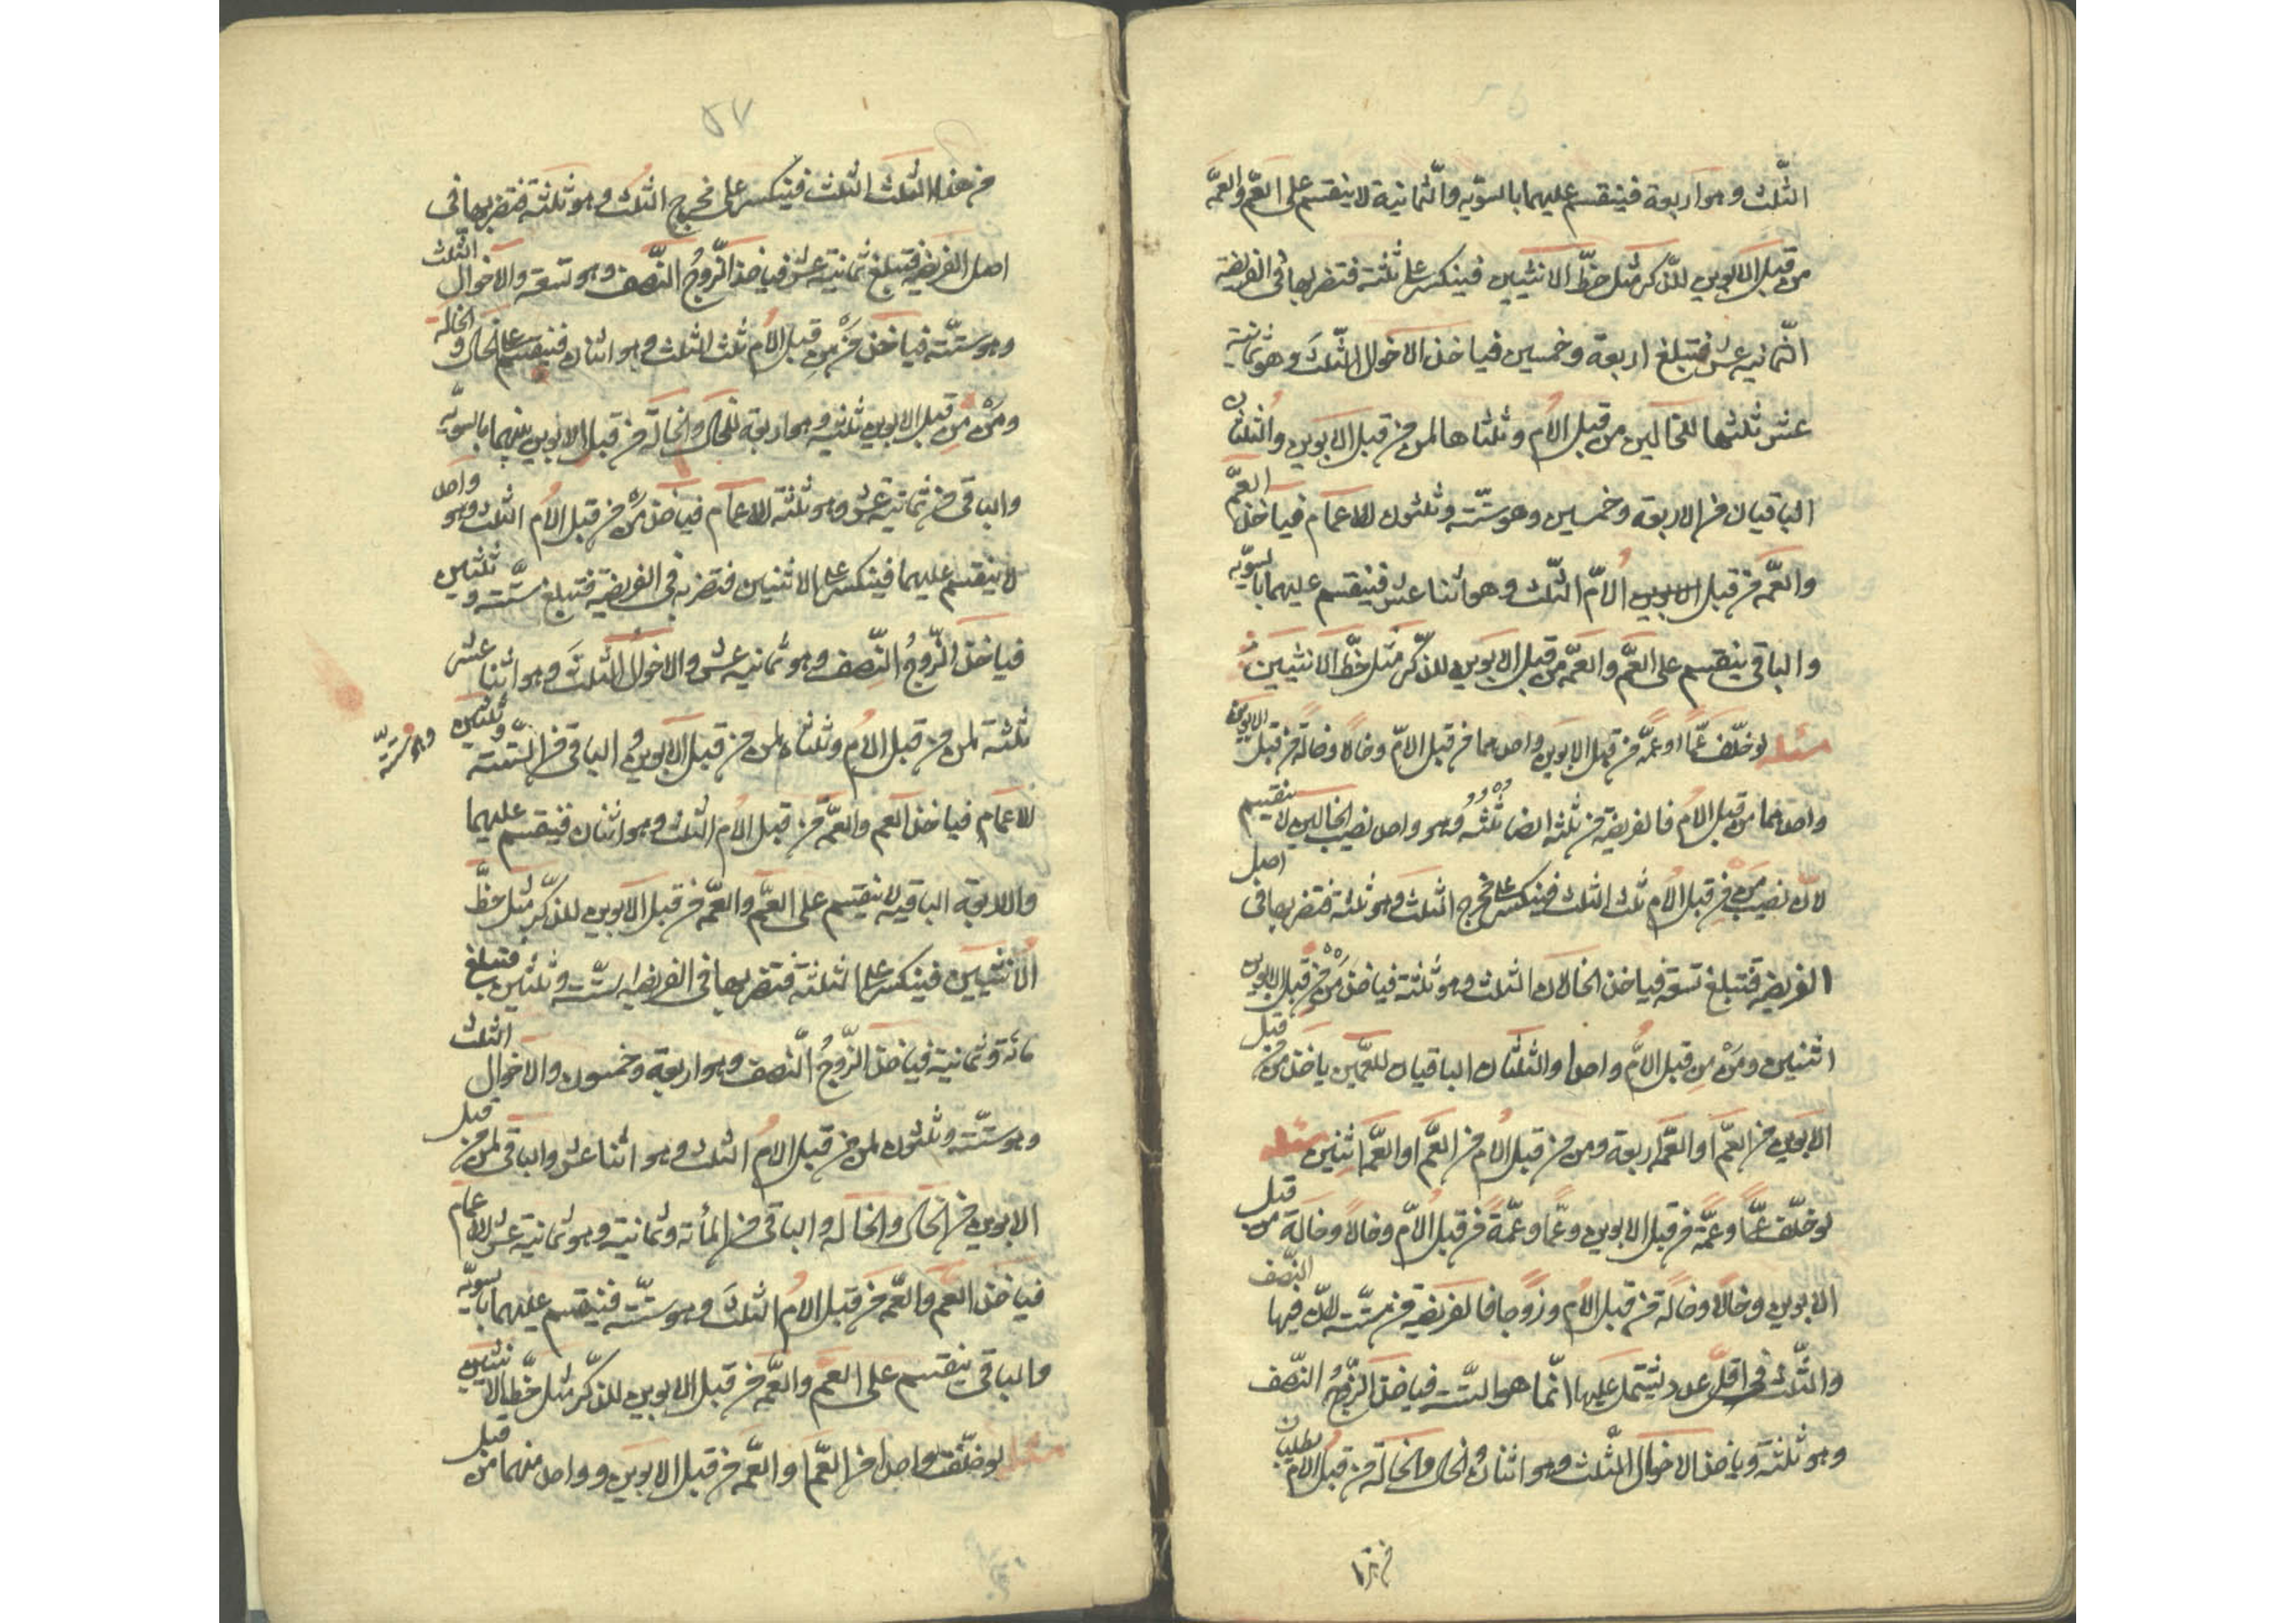 الثّلث وهو اربعة فينقسم عليهما بالسّويّه والثّمانية لا ينقسم على العمّ والعمّه
من قبل الابوين للذّكر مثل حظّ الانثيين فينكسر على ثلثة فتضربها فى الفريضة
الثّمانيه عشر فتبلغ اربعة وخمسين فياخذ الاخوال الثّلث وهو ثمانية
عشر ثلثها للخالين من قبل الام وثلثاها لمن من قبل الابوين والثلثان
الباقيان من الاربعة وخمسين وهو ستّته وثلثون للاعمام فياخذ العمّ
والعمّه من قبل الابوين الامّ الثّلث وهو اثنا عشر فينقسم عليهما بالسويّه
والباقى ينقسم على العمّ والعمّه من قبل الابوين للذكر مثل حظّ الانثيين
مسئله لو خلّف عمّا او عمّه من قبل الابوين واحدهما من قبل الامّ وخالا وخالة من قبل الابوين
واحدهما من قبل الام فالفريضة من ثلثه ايضا ثلثه وهو واحد نصيب الخالين لا ينقسم
لانّ نصيب من من قبل الام ثلث الثلث فينكسر على مخرج الثلث وهو ثلثة فتضربها فى اصل
الفريضه فتبلغ تسعه فياخذ الخالان الثلث وهو ثلثة فياخذ من من قبل الابوين
اثنين ومن من قبل الامّ واحدا والثلثان الباقيان للعمّين ياخذ من من قبل
الابوين من العمّ او العمّه اربعة ومن من قبل الام من العمّ او العمّه اثنين مسئله
لو خلّف عمّا وعمّة من قبل الابوين وعمّا وعمّة من قبل الامّ وخالا وخالة من قبل
الابوين وخالا وخالة من قبل الام وزوجا فالفريضة من ستّته لانّ فيها النّصف
والثّلث فى اقلّ عدد يشتمل عليها انّما هو الستّته فياخذ الزّوج النّصف
وهو ثلثة وياخذ الاخوال الثّلث وهو اثنان والخال والخالة من قبل الام يطلبان
من هذا
٥٧
من هذا الثّلث الثلث فينكسر على مخرج الثلث وهو ثلثة فتضربها فى
اصل الفريضة فتبلغ ثمانية عشر فياخذ الزّوج النّصف وهو تسعة والاخوال الثّلث
وهو ستّته فياخذ من من قبل الام ثلث الثلث وهو اثنان فينقسم على الخال والخاله
ومن من قبل الابوين ثلثيه وهو اربعة للخال والخالة من قبل الابوين بينهما بالسويّه
والباقى من ثمانية عشر وهو ثلثة للاعمام فياخذ من من قبل الام الثلث وهو واحد
لا ينقسم عليهما فينكسر على الاثنين فتضربه فى الفريضه فتبلغ ستّته وثلثين
فياخذ الزّوج النّصف وهو ثمانيه عشر والاخوال الثلث وهو اثنا عشر
ثلثه لمن من قبل الام وثلثاه لمن من قبل الابوين والباقى من الستّته وثلثين وهو ستّه
للاعمام فياخذ العم والعمّه من قبل الام الثلث وهو اثنان فينقسم عليهما
والاربعة الباقيه لا ينقسم على العمّ والعمّه من قبل الابوين للذكر مثل حظّ
الانثيين فينكسر على الثلثة فتضربها فى الفريضه الستّته وثلثين فتبلغ
مائة وثمانية فياخذ الزّوج النّصف وهو اربعة وخمسون والاخوال الثلث
وهو ستّته وثلثون لمن من قبل الام الثلث وهو اثنا عشر والباقى لمن من قبل
الابوين من الخال والخاله والباقى من المأئة وثمانية وهو ثمانية عشر للاعمام
فياخذ العم والعمّه من قبل الام الثلث وهو ستّته فينقسم عليهما بالسويّه
والباقى ينقسم على العمّ والعمّه من قبل الابوين للذكر مثل حظّ الانثيين
مسئله لو خلّف واحدا من العمّ او العمّه من قبل الابوين وواحد منهما من قبل